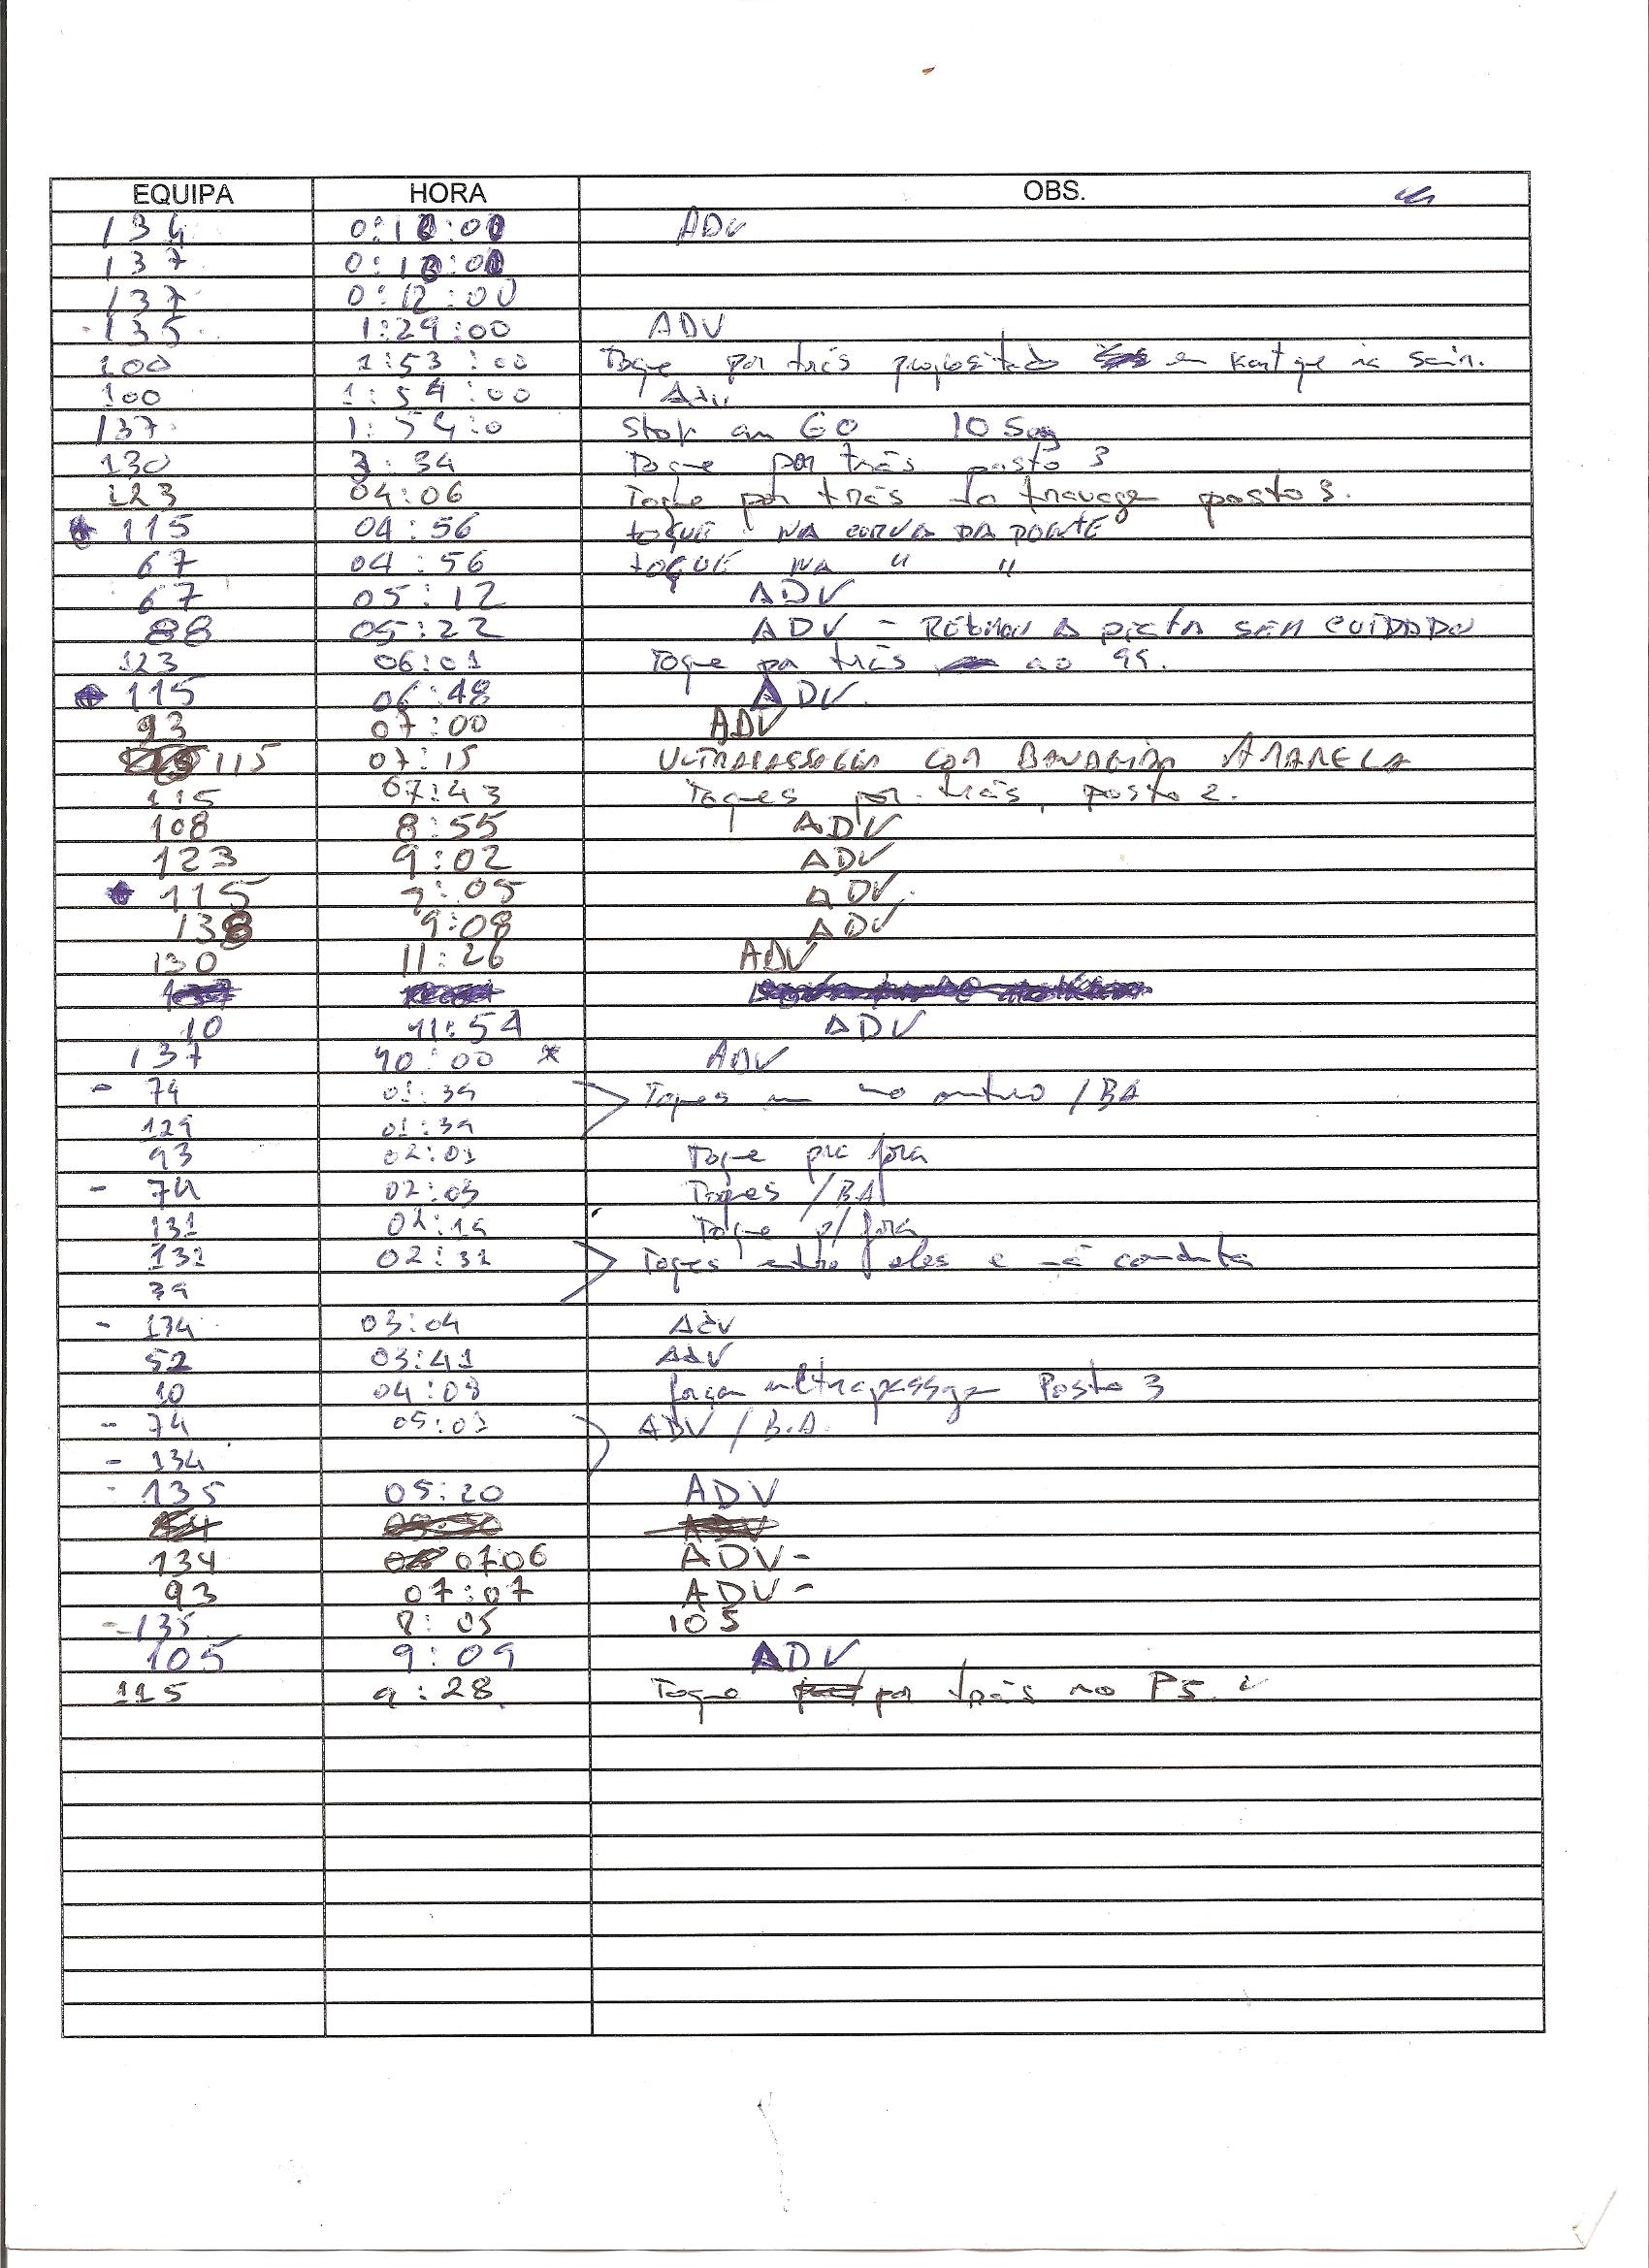 EQUIPA HORA OBS.
134 0:10:00 ADV
137 0:10:00
137 0:12:00
135 1:29:00 ADV
100 1:53:00 Toque por trás propositado em kart que ia sair.
100 1:54:00 Adv
137 1:54:0 Stop an GO 10 Seg
130 3:34 Toque por trás posto 3
123 04:06 Toque por trás na travage posto 3.
115 04:56 toQUE NA CURVA DA PONTE
67 04:56 toQUE NA " "
67 05:12 ADV
88 05:22 ADV - A pista SEM CUIDADO
123 06:01 Toque por trás ao 99.
115 06:48 ADV.
93 07:00 ADV
115 07:15 ULTRAPASSAGEM COM BANDEIRA AMARELA
115 07:43 Toques por trás, posto 2.
108 8:55 ADV
123 9:02 ADV
115 9:05 ADV.
138 9:08 ADV
130 11:26 ADV
10 11:54 ADV
137 10:00 * ADV
- 74 01:39 Toques um no outro /BA
129 01:39
93 02:01 Toque pra fora
- 74 02:03 Toques /BA
131 02:19 Toque p/ fora
131 02:31 Toques entre eles e má conduta
39
- 134 03:04 Adv
52 03:41 Adv
10 04:08 forçar ultrapassage Posto 3
- 74 05:01 ADV / B.A.
- 134
- 135 05:20 ADV
134 0706 ADV-
93 07:07 ADV-
- 135 8:05 10 S
105 9:09 ADV
115 9:28 Toque por trás no P5.